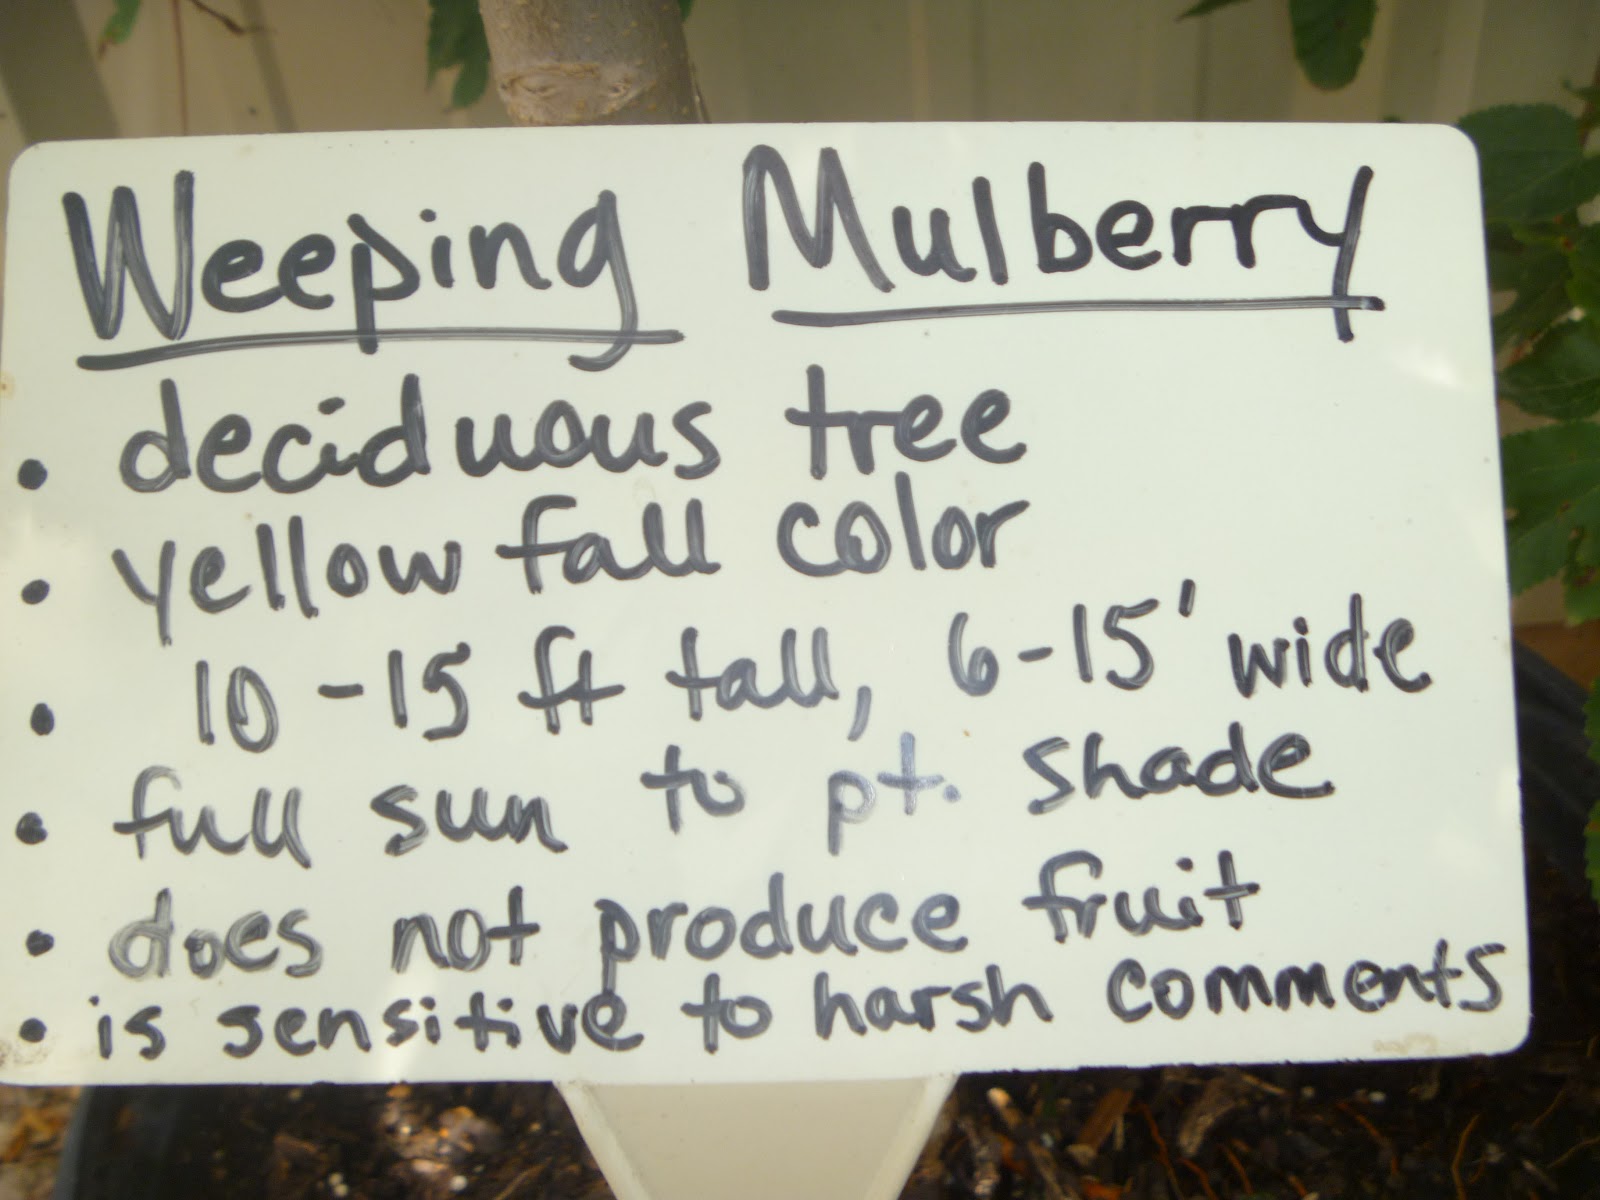 Weeping Mulberry
• deciduous tree
• yellow fall color
• 10-15 ft tall, 6-15' wide
• full sun to pt. shade
• does not produce fruit
• is sensitive to harsh comments